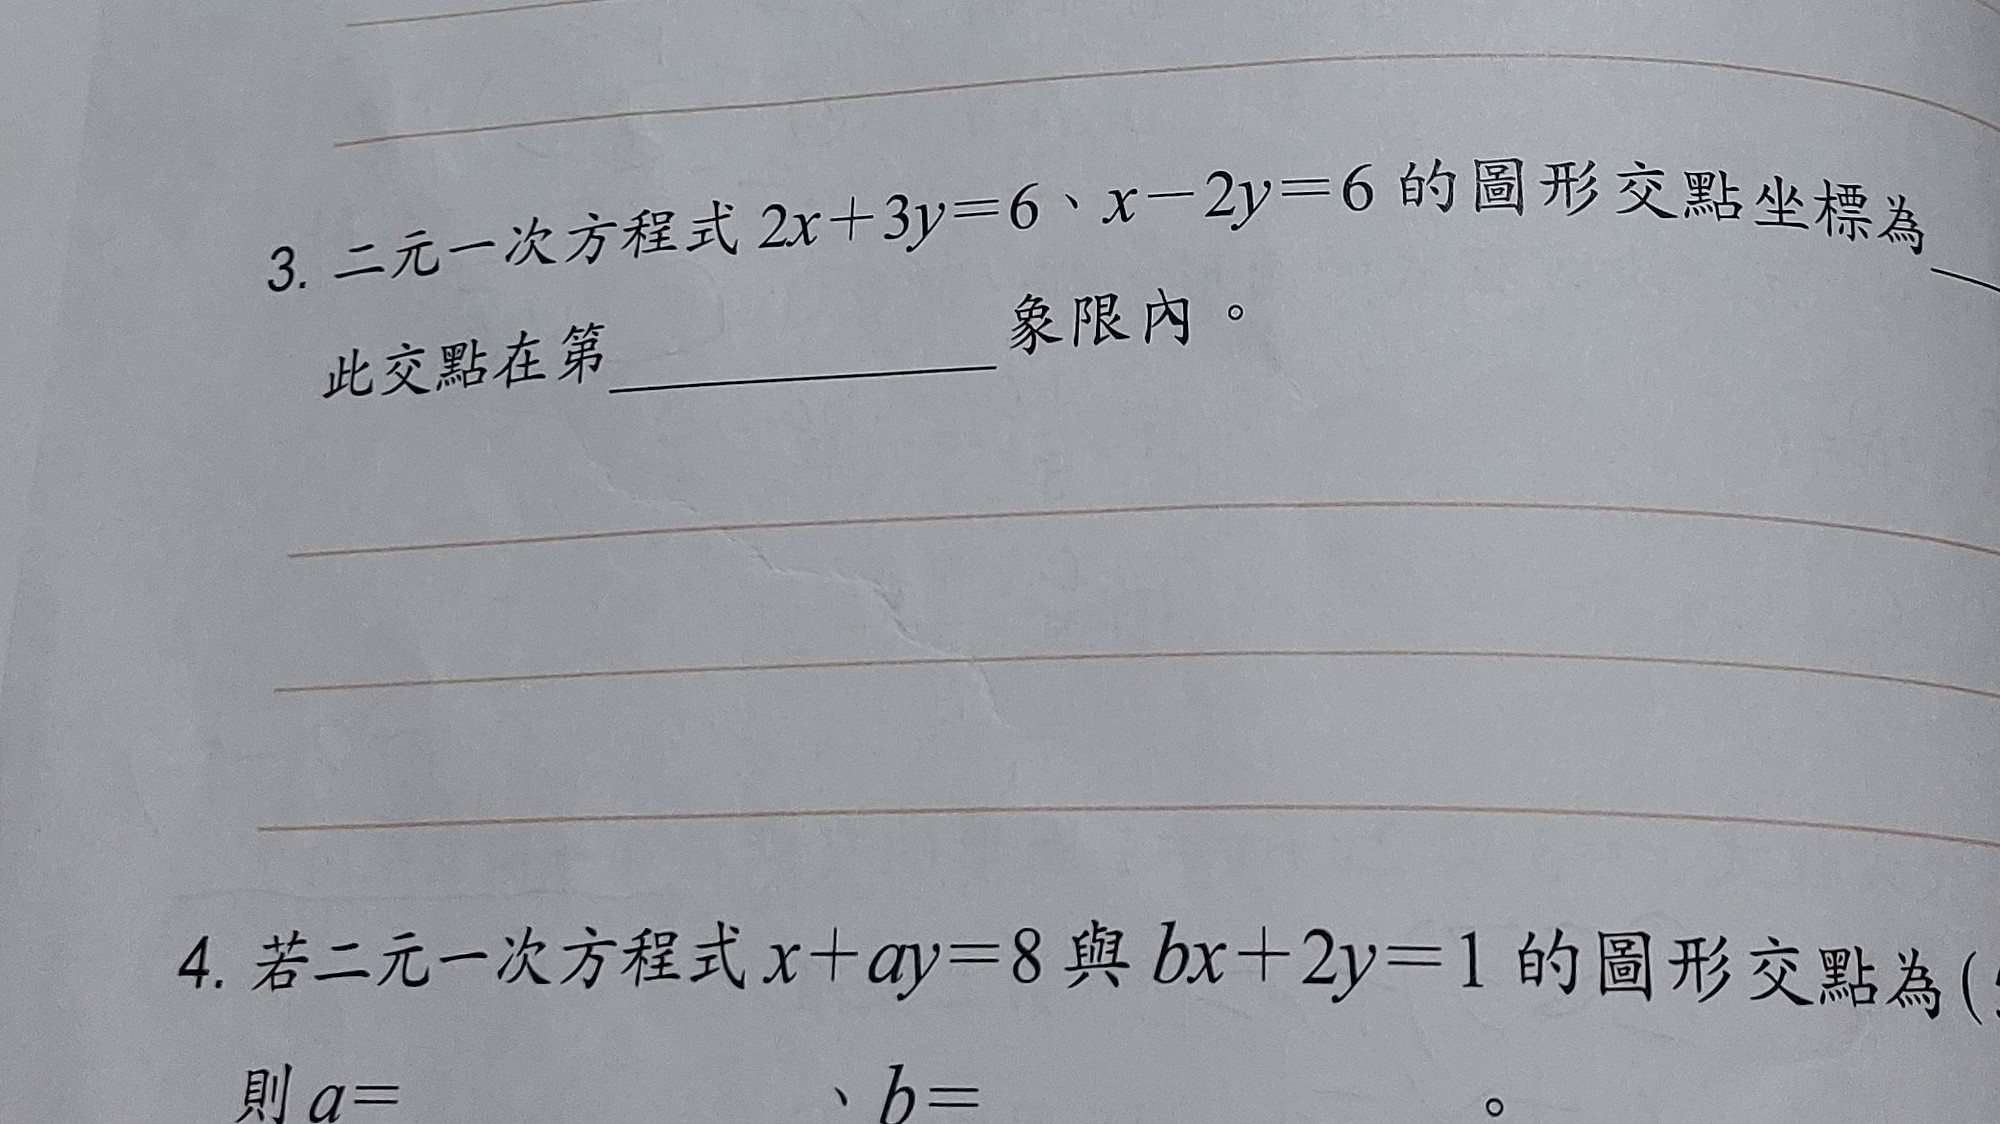 3. 二元一次方程式 2x+3y=6、x-2y=6 的圖形交點坐標為
此交點在第____________象限內。
4. 若二元一次方程式 x+ay=8 與 bx+2y=1 的圖形交點為(
則 a= 、b= 。